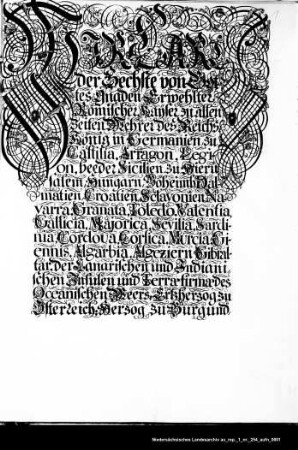 WIR CARL
der Sechste von Got-
tes Gnaden Erwehlter
Römischer Kayser zu allen
Zeiten Mehrer des Reichs
König in Germanien zu
Castilia, Arragon, Legi-
on, beeder Sicilien zu Hieru
salem Hungarn, Boheimb Dal-
matien Croatien Sclavonien Na
varra, Granata, Toledo, Valentia,
Gallicia, Majorica, Sevilia, Sardi-
nia, Cordova, Corsica, Murcia, Gi-
ennis, Algarbia, Algeziern Gibral-
tar, der Canarischen und Indiani-
schen Insulen und Terræ firmæ des
Oceanischen Meers, Ertzherzog zu
Österreich, Herzog zu Burgund